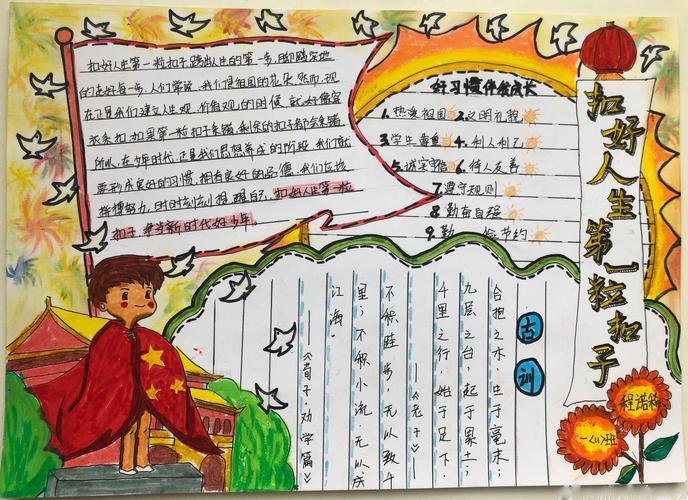 扣好人生第一粒扣子
扣好人生第一粒扣子,踏出人生的第一步,脚踏实地
的走好每一步,人们常说,我们是祖国的花朵,然而,现
在正是我们建立人生观、价值观的时候,就好像穿
衣系扣,如果第一粒扣子系错,剩余的扣子都会系错
所以,在少年时代,正是我们思想养成的阶段,我们就
要形成良好的习惯,拥有良好的品德,我们应该
拼搏努力,时时刻刻提醒自己,扣好人生第一粒
扣子,争当新时代好少年。
好习惯伴我成长
1.热爱祖国 2.文明礼貌
3.学生尊重 4.利人利己
5.诚实守信 6.待人友善
7.遵守规则
8.勤奋自强
9.勤 俭节约
古训
合抱之木,生于毫末;
九层之台,起于累土;
千里之行,始于足下。
——《老子》
不积跬步,无以致千
里;不积小流,无以成
江海。
——《荀子·劝学篇》
程诺
一(1)班